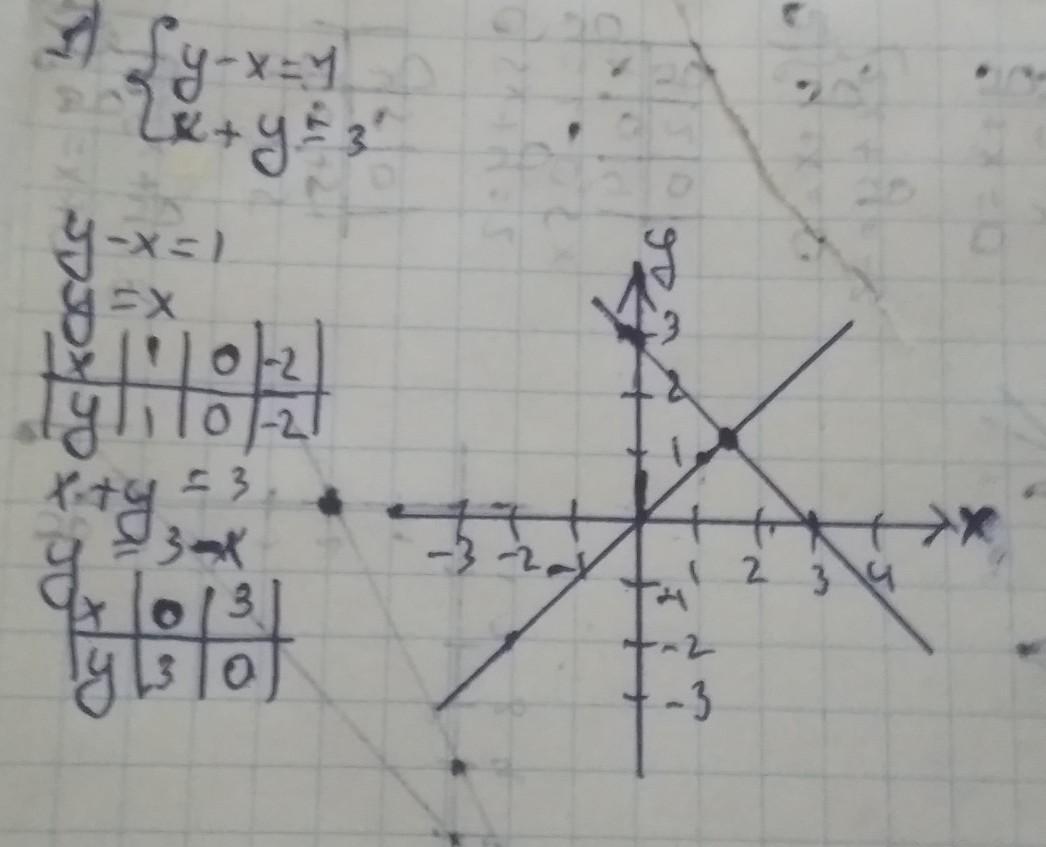 1) { y - x = 1
x + y = 3
y - x = 1
y = x
x | 1 | 0 | -2
y | 1 | 0 | -2
x + y = 3
y = 3 - x
x | 0 | 3
y | 3 | 0
y
3
2
1
-3 -2 -1 1 2 3 4 x
-1
-2
-3